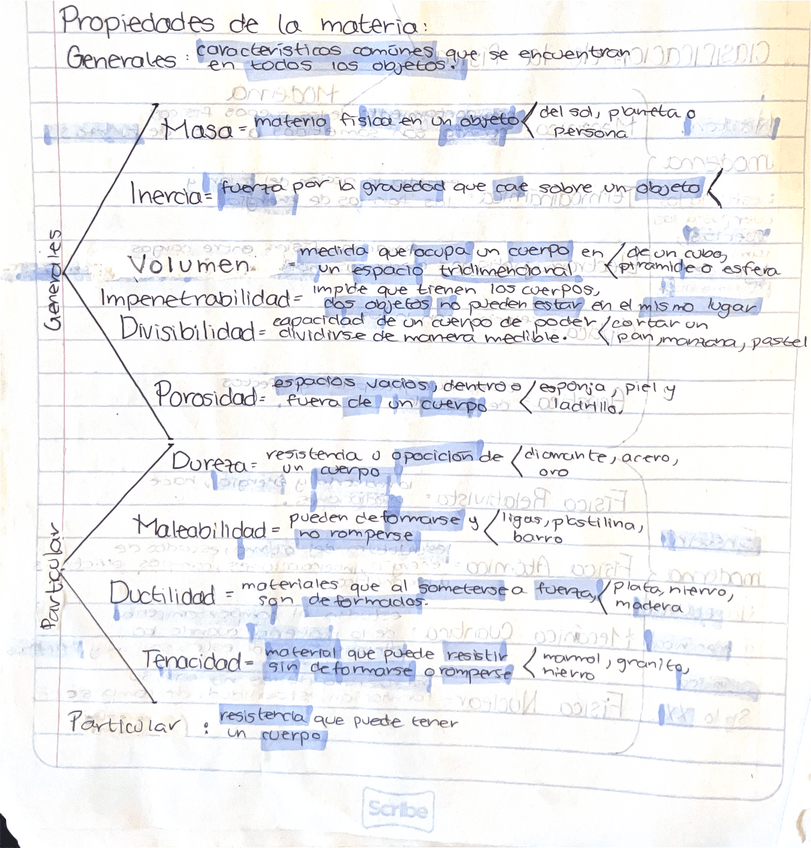 Propiedades de la materia:
Generales: características comúnes que se encuentran
en todos los objetos.
Generales
Masa = materia física en un objeto < del sol, planeta o
persona
Inercia = fuerza por la gravedad que cae sobre un objeto <
Volumen = medida que ocupa un cuerpo en < de un cubo,
un espacio tridimencional pirámide o esfera
Impenetrabilidad = impide que tienen los cuerpos,
dos objetos no pueden estar en el mismo lugar
Divisibilidad = capacidad de un cuerpo de poder < cortar un
dividirse de manera medible. pan, manzana, pastel
Porosidad = espacios vacios, dentro o < esponja, piel y
fuera de un cuerpo ladrillo.
Particular
Dureza = resistencia u oposición de < diamante, acero,
un cuerpo oro
Maleabilidad = pueden deformarse y < ligas, plastilina,
no romperse barro
Ductilidad = materiales que al someterse a fuerza, < plata, hierro,
son deformados. madera
Tenacidad = material que puede resistir < marmol, granito,
sin deformarse o romperse hierro
Particular : resistencia que puede tener
un cuerpo
Scribe